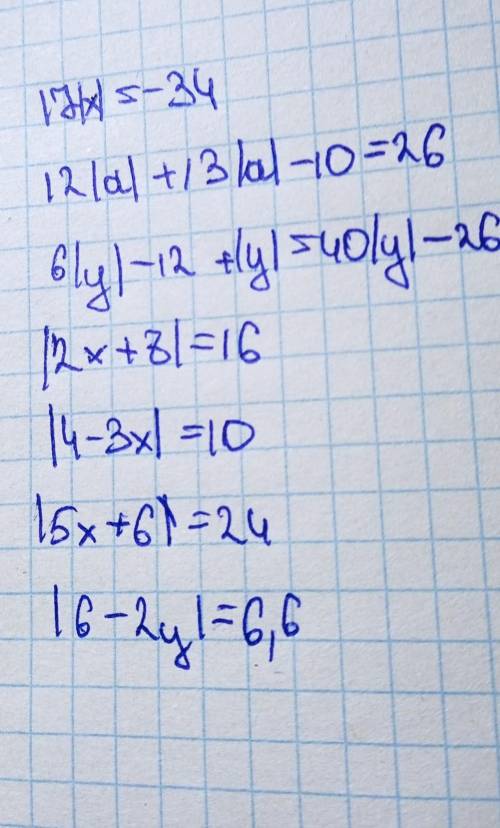 17|x|=-34
12|a|+13|a|-10=26
6|y|-12+|y|=40|y|-26
|2x+8|=16
|4-3x|=10
|5x+6|=24
|6-2y|=6,6